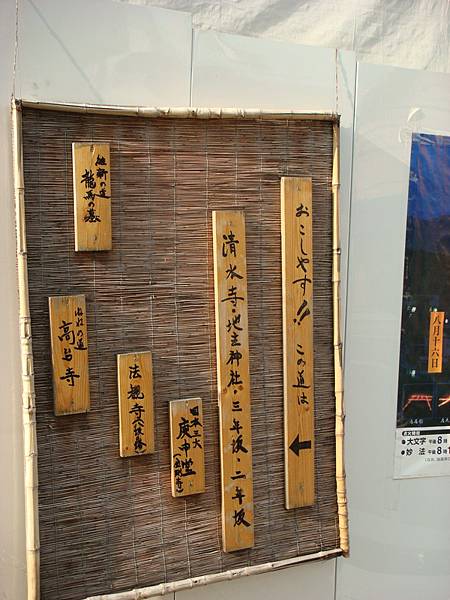 おこしやす!! この道は。
←
清水寺・地主神社・三年坂・二年坂
日本三大
庚申堂
(金剛寺)
法観寺(八坂の塔)
維新の道
龍馬の墓
ねねの道
高台寺
八月十六日
点火時刻
●大文字 午後8時
●妙 法 午後8時1